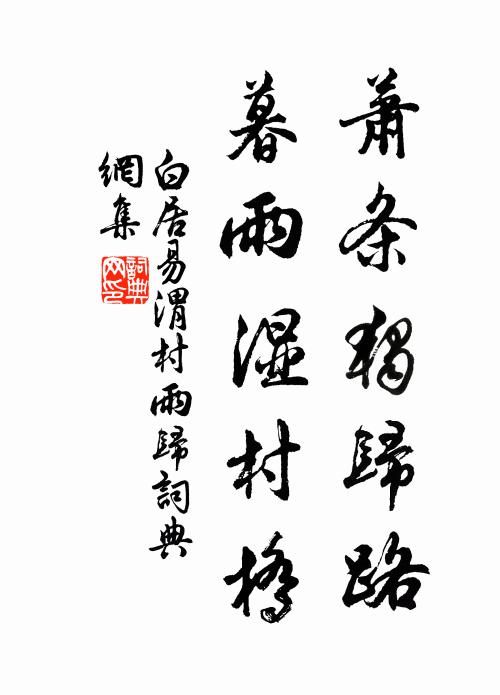 蕭条獨歸路
暮雨湿村橋
白居易渭村雨歸詞典
網集
詞典
网印